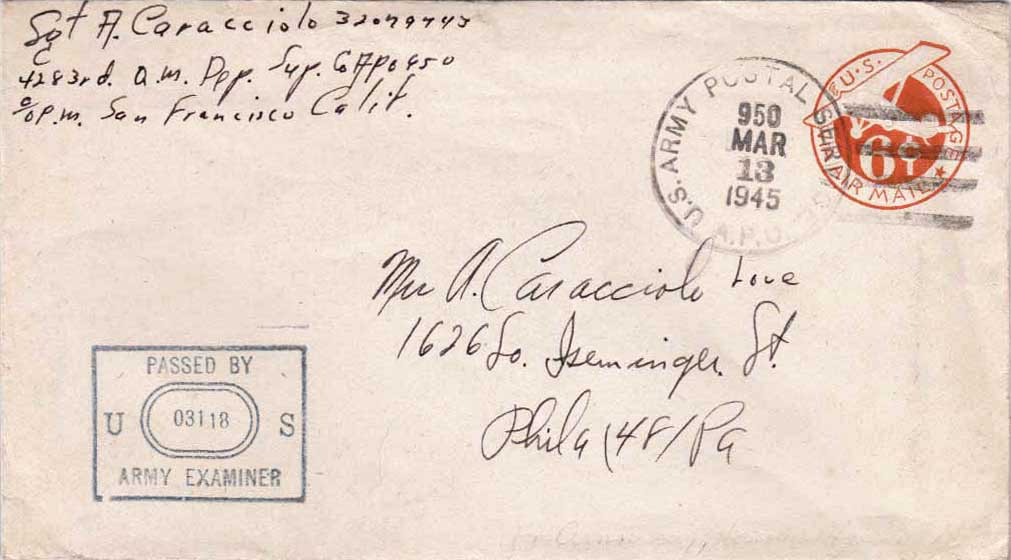 Sgt A. Caracciolo 32079743
4283rd. Q.M. Dep. Sup. Co APO 950
c/o P.M. San Francisco Calif.
U.S. ARMY POSTAL SERVICE
950
MAR
13
1945
A.P.O.
U.S. POSTAGE
6¢
VIA AIR MAIL
Mr A. Caracciolo Love
1626 So. Iseminger St
Phila (48) Pa
PASSED BY
U 03118 S
ARMY EXAMINER